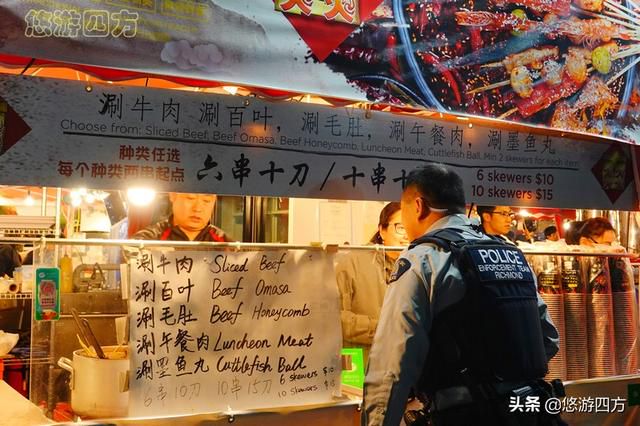 悠游四方
涮牛肉 涮百叶, 涮毛肚, 涮午餐肉, 涮墨鱼丸
Choose from: Sliced Beef, Beef Omasa, Beef Honeycomb, Luncheon Meat, Cuttlefish Ball, Min 2 skewers for each item
种类任选
每个种类两串起点
六串十刀/十串十
6 skewers $10
10 skewers $15
涮牛肉 Sliced Beef
涮百叶 Beef Omasa
涮毛肚 Beef Honeycomb
涮午餐肉 Luncheon Meat
涮墨鱼丸 Cuttlefish Ball
6串10刀 10串15刀
6 skewers $10
10 skewers
POLICE
ENFORCEMENT TEAM
RICHMOND
头条 @悠游四方